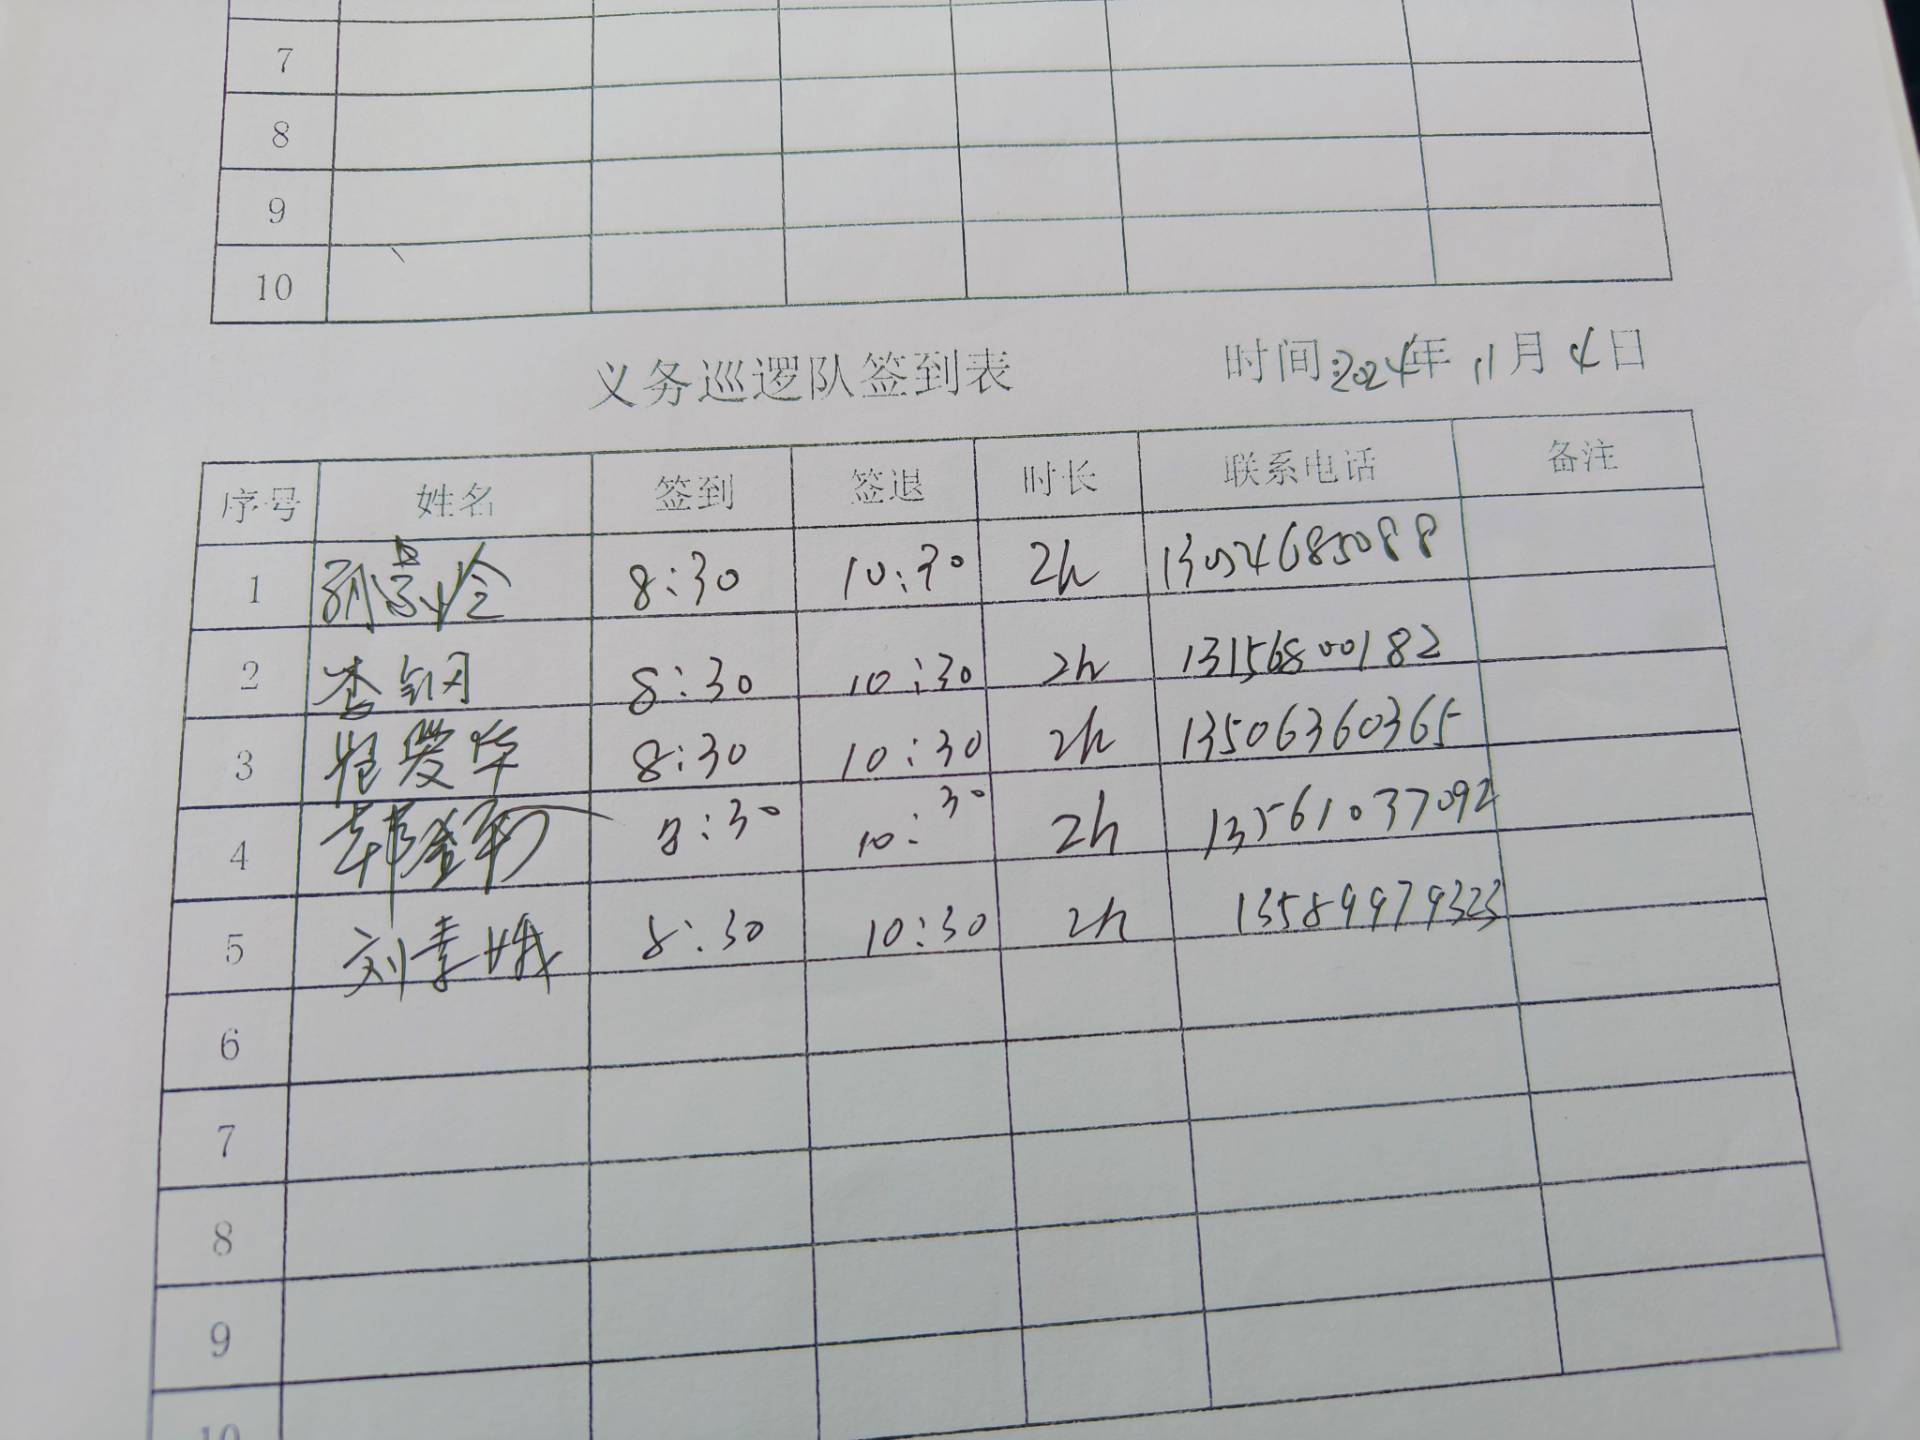 7
8
9
10
义务巡逻队签到表 时间:2024年11月4日
序号 姓名 签到 签退 时长 联系电话 备注
1 8:30 10:30 2h 13054685088
2 李钢 8:30 10:30 2h 13156800182
3 爱华 8:30 10:30 2h 13506360365
4 韩 8:30 10:30 2h 13561037092
5 刘季娥 8:30 10:30 2h 13589979323
6
7
8
9
10